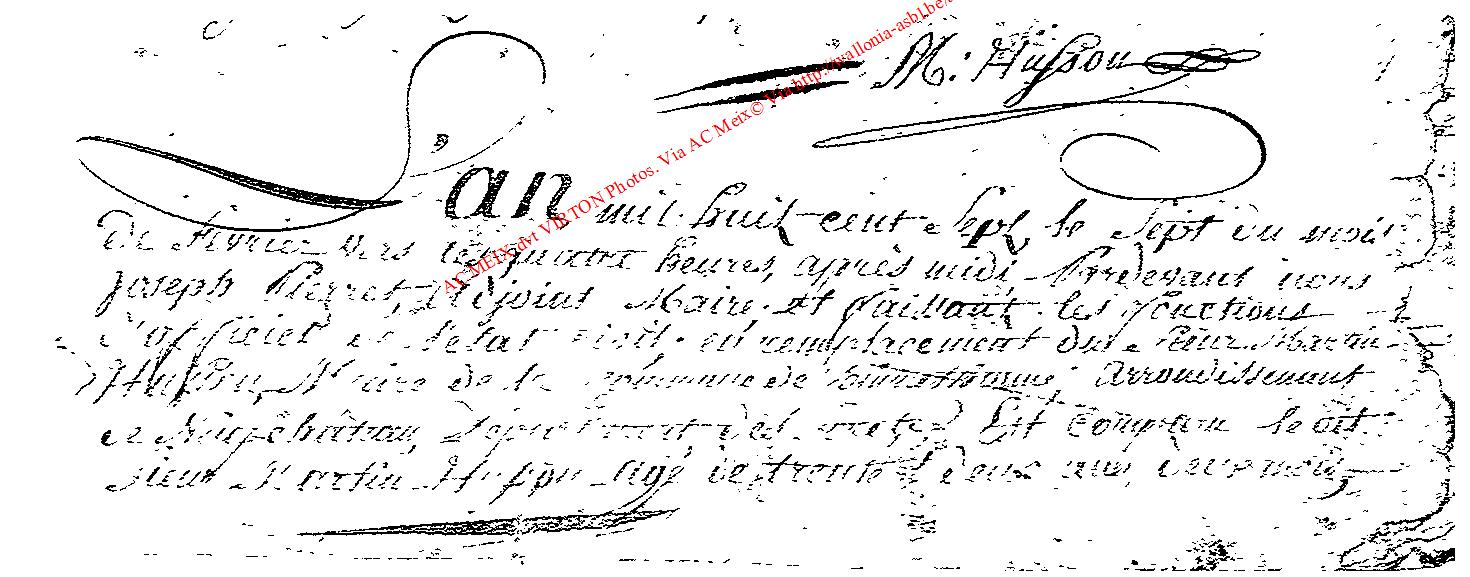 M. Husson
AC MEIX dvt VIRTON Photos. Via AC Meix © Via http://wallonia-asbl.be/
L'an mil huit cent Sept le Sept du mois
De Fevrier vers les quatre heures, après midi, Pardevant nous
Joseph Pierret, Adjoint Maire et faisant les fonctions
d'officier de l'etat civil, en remplacement du Sieur Martin
Husson, Maire de la commune de arrondissement
de Neufchâteau, Departement des forets, Est comparu ledit
sieur Martin Husson agé de trente deux ans, deux mois,